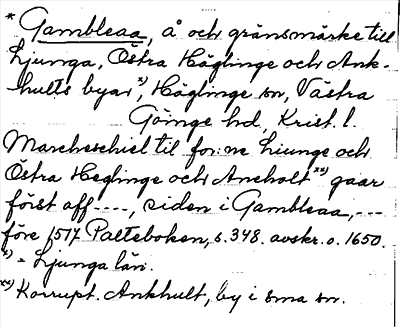 * Gambleaa, å och gränsmärke till
Ljunga, Östra Häglinge och Ank-
hults byar x), Häglinge sn, Västra
Göinge hd, Krist. l.
Marcheschiel til for:ne Liunge och
Östra Heglinge och Aneholt xx) gaar
först aff ----, siden i Gambleaa, ---
före 1517 Palteboken, s. 348. avskr. o. 1650.
x) = Ljunga län.
xx) Korrupt. Ankhult, by i sma sn.